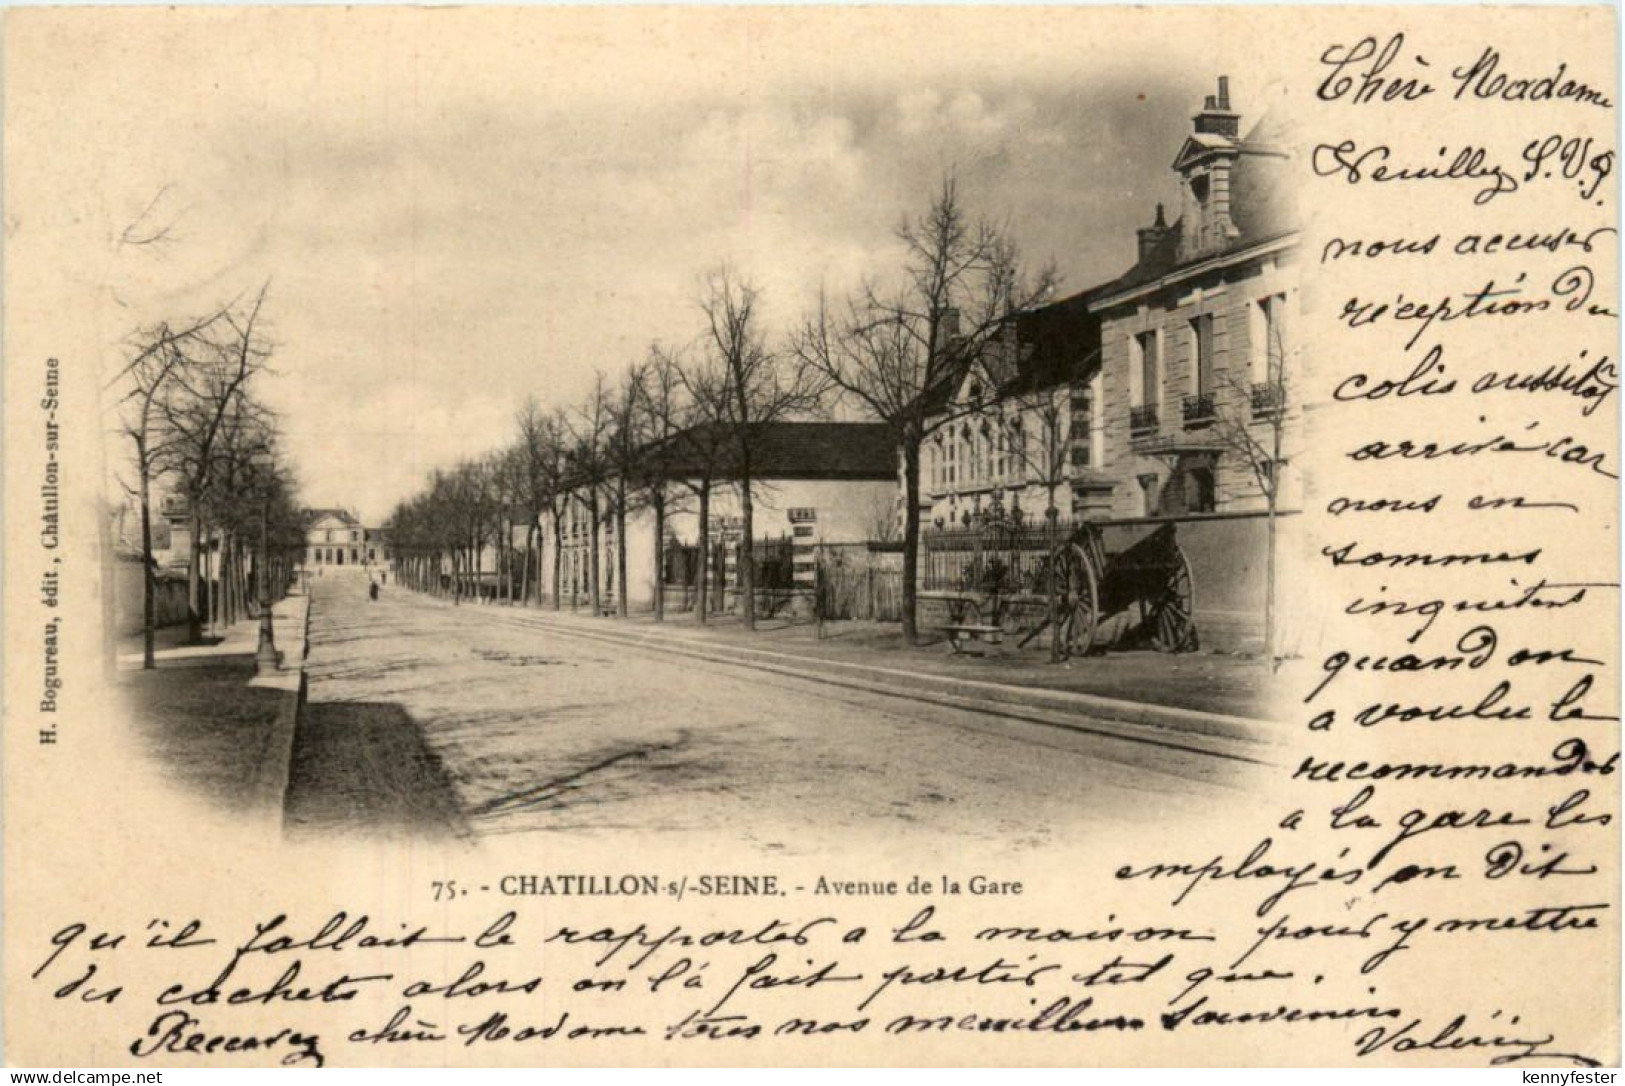 Chère Madame
Veuillez S.V.P.
nous accuser
réception du
colis aussitôt
arrivé car
nous en
sommes
inquiétent
quand on
a voulu le
recommander
a la gare les
employés on dit
qu'il fallait le rapporter a la maison pour y mettre
des cachets alors on l'à fait partir tel que.
Recevez chère Madame tous nos meilleurs souvenirs
Valérie
75. - CHATILLON-s/-SEINE. - Avenue de la Gare
H. Bogureau, édit., Châtillon-sur-Seine
delcampe.net
kennyfester